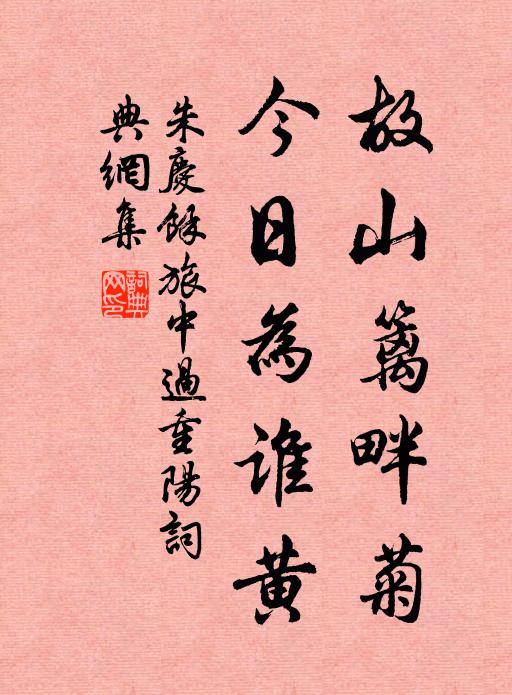 故山籬畔菊
今日為誰黃
朱慶餘旅中過重陽詞
典網集
詞典網印